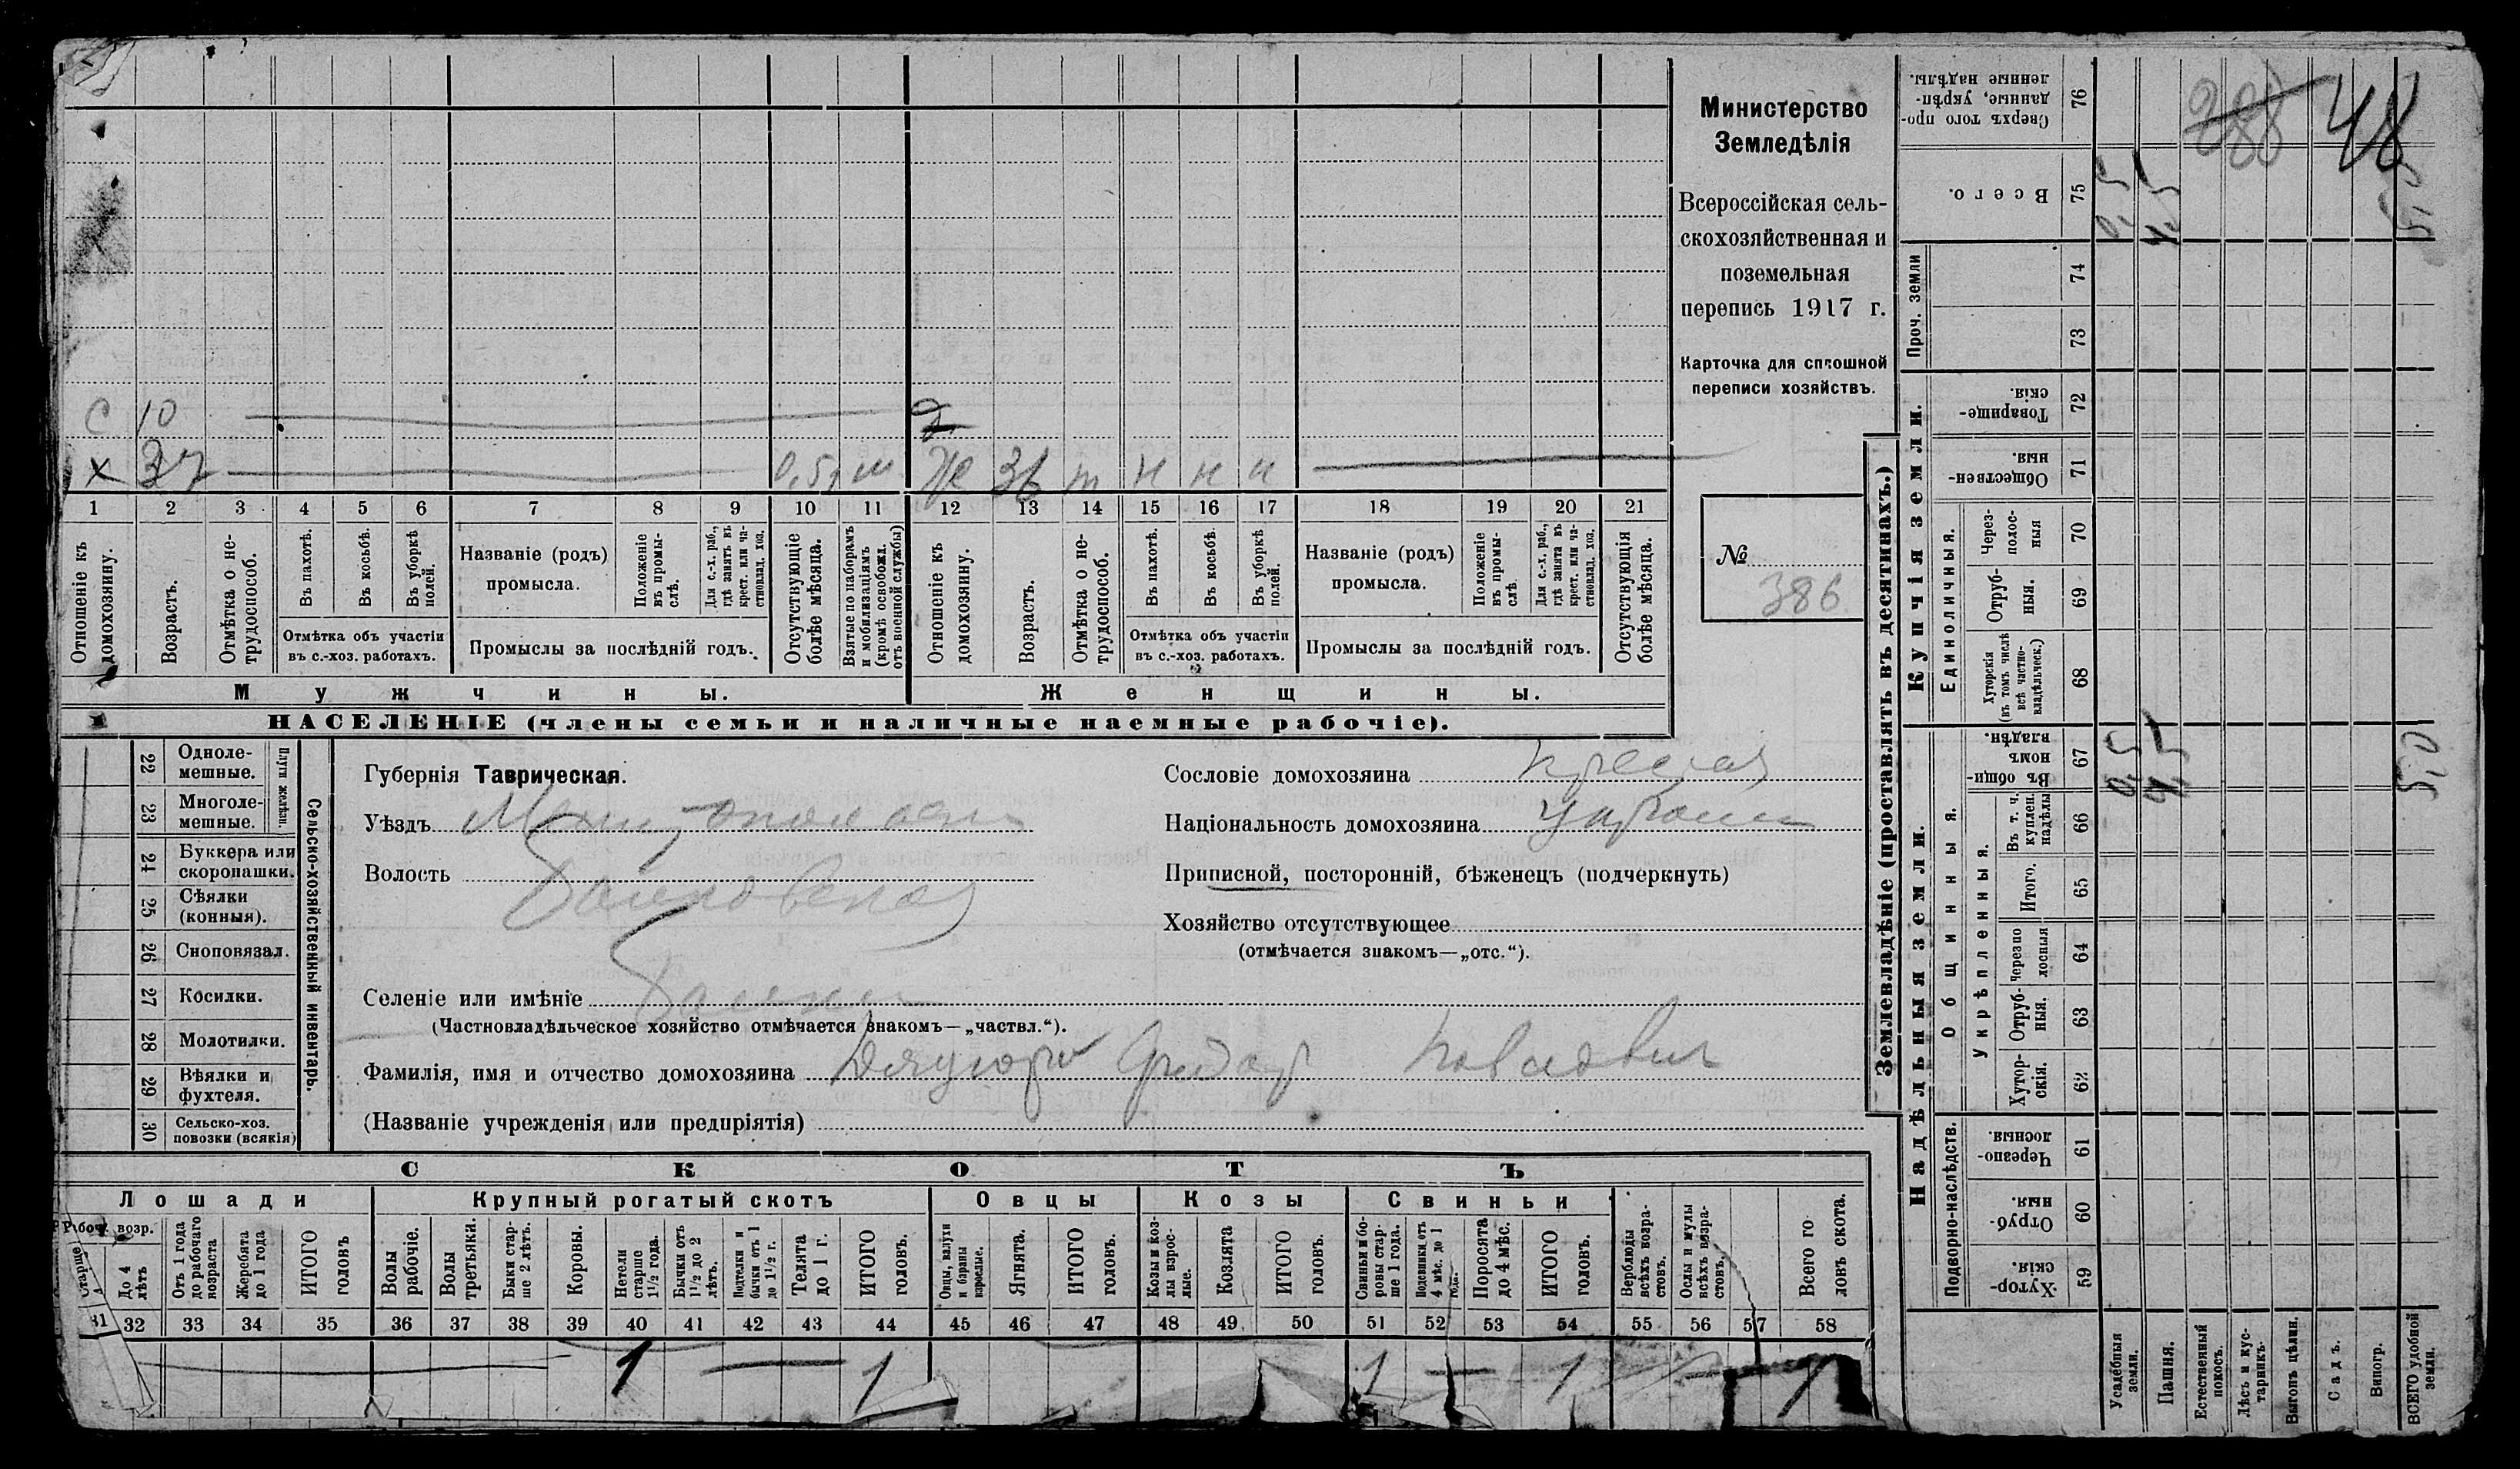 Министерство
Земледѣлія
Всероссійская сель-
скохозяйственная и
поземельная
перепись 1917 г.
Карточка для сплошной
переписи хозяйствъ.
№
386
288
48
С 10
Х 37 0,5 Ж 36 т н н н
1 2 3 4 5 6 7 8 9 10 11 12 13 14 15 16 17 18 19 20 21
Отношеніе къ домохозяину.
Возрастъ.
Отмѣтка о не-трудоспособ.
Въ пахотѣ.
Въ косьбѣ.
Въ уборкѣ полей.
Отмѣтка объ участіи
въ с.-хоз. работахъ.
Названіе (родъ)
промысла.
Положеніе въ промы-слѣ.
Для с.-х. раб., гдѣ занятъ въ крест. или ча-стновлад. хоз.
Промыслы за послѣдній годъ.
Отсутствующіе болѣе мѣсяца.
Взятые по наборамъ и мобилизаціямъ (кромѣ освобожд. отъ военной службы)
Отношеніе къ домохозяину.
Возрастъ.
Отмѣтка о не-трудоспособ.
Въ пахотѣ.
Въ косьбѣ.
Въ уборкѣ полей.
Отмѣтка объ участіи
въ с.-хоз. работахъ.
Названіе (родъ)
промысла.
Положеніе въ промы-слѣ.
Для с.-х. раб., гдѣ занята въ крест. или ча-стновлад. хоз.
Промыслы за послѣдній годъ.
Отсутствующія болѣе мѣсяца.
Мужчины.
Женщины.
НАСЕЛЕНІЕ (члены семьи и наличные наемные рабочіе).
Сельско-хозяйственный инвентарь.
Плуги желѣзн.
22 Одноле-мешные.
23 Многоле-мешные.
24 Буккера или скоропашки.
25 Сѣялки (конныя).
26 Сноповязал.
27 Косилки.
28 Молотилки.
29 Вѣялки и фухтеля.
30 Сельско-хоз. повозки (всякія)
Губернія Таврическая.
Уѣздъ Мелитопольск
Волость
Селеніе или имѣніе
(Частновладѣльческое хозяйство отмѣчается знакомъ—„частвл.“).
Фамилія, имя и отчество домохозяина
(Названіе учрежденія или предпріятія)
Сословіе домохозяина
Національность домохозяина
Приписной, посторонній, бѣженецъ (подчеркнуть)
Хозяйство отсутствующее
(отмѣчается знакомъ—„отс.“).
СКОТЪ
Лошади
Крупный рогатый скотъ
Овцы
Козы
Свиньи
Рабоч. возр.
Старше 4
До 4 лѣтъ
Отъ 1 года до рабочаго возраста
Жеребята до 1 года
ИТОГО головъ
Волы рабочіе.
Волы третьяки.
Быки стар-ше 2 лѣтъ.
Коровы.
Нетели старше 1½ года.
Бычки отъ 1½ до 2 лѣтъ.
Подтелки и бычки отъ 1 до 1½ г.
Телята до 1 г.
ИТОГО головъ.
Овцы, валухи и бараны взрослые.
Ягнята.
ИТОГО головъ.
Козы и коз-лы взрос-лые.
Козлята
ИТОГО головъ.
Свиньи и бо-ровы стар-ше 1 года.
Подсвинки отъ 4 мѣс. до 1 года.
Поросята до 4 мѣс.
ИТОГО головъ.
Верблюды всѣхъ возра-стовъ.
Ослы и мулы всѣхъ возра-стовъ.
Всего го-ловъ скота.
31 32 33 34 35 36 37 38 39 40 41 42 43 44 45 46 47 48 49 50 51 52 53 54 55 56 57 58
1 1 1 1
Землевладѣніе (проставлять въ десятинахъ.)
Купчія земли.
Надѣльныя земли.
Сверхъ того про-данные, укрѣп-ленные надѣлы. 76
Всего. 75 0,5 4,5
Проч. земли
74
73
Товарище-скія 72
Обществен-ныя. 71
Единоличныя.
Через-полос-ныя 70
Отруб-ныя. 69
Хуторскія (въ томъ числѣ всѣ частно-владѣльческ.) 68
Общинныя.
Въ общи-номъ владѣн. 67 0,5 4,5 5,0
Укрѣпленныя.
Въ т. ч. куплен. надѣлы 66
Итого. 65
Черезполосныя 64
Отруб-ныя. 63
Хутор-скія. 62
Подворно-наслѣдств.
Черезпо-лосныя. 61
Отруб-ныя. 60
Хутор-скія. 59
Усадебныя земли.
Пашня.
Естественный покосъ.
Лѣсъ и кус-тарникъ.
Выгонъ цѣлин.
Садъ.
Виногр.
ВСЕГО удобной земли.